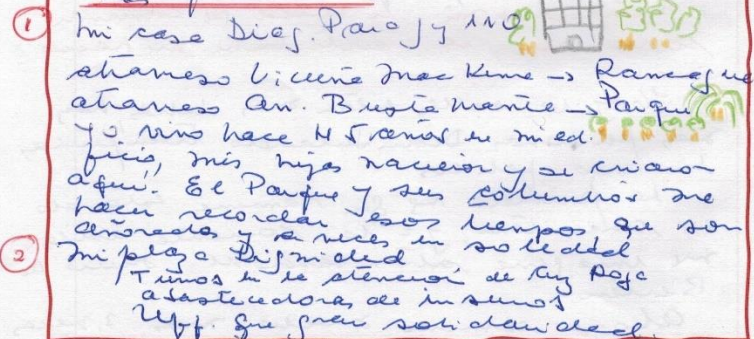 1 Mi casa Diag. Paraguay 110
atravieso Vicuña Mackena → Rancagua
atravieso Av. Bustamante → Parque
yo vivo hace 45 años en mi edi
ficio, mis hijos nacieron y se criaron
aquí. El Parque y sus columpios me
hacen recordar esos tiempos que son
añorados y a veces en soledad
2 Mi plaza Dignidad
Turnos en la atención de Cruz Roja
abastecedoras de insumos
Uff. que gran solidaridad.